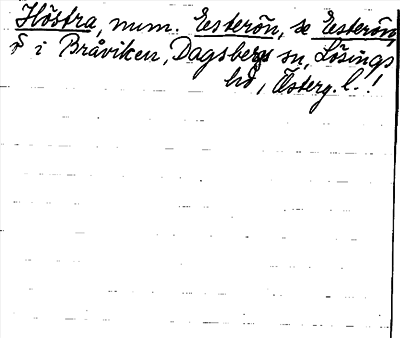 Höstra, num. Esterön, se Esterön,
ö i Bråviken, Dagsbergs sn, Lösings
hd, Österg. l.!